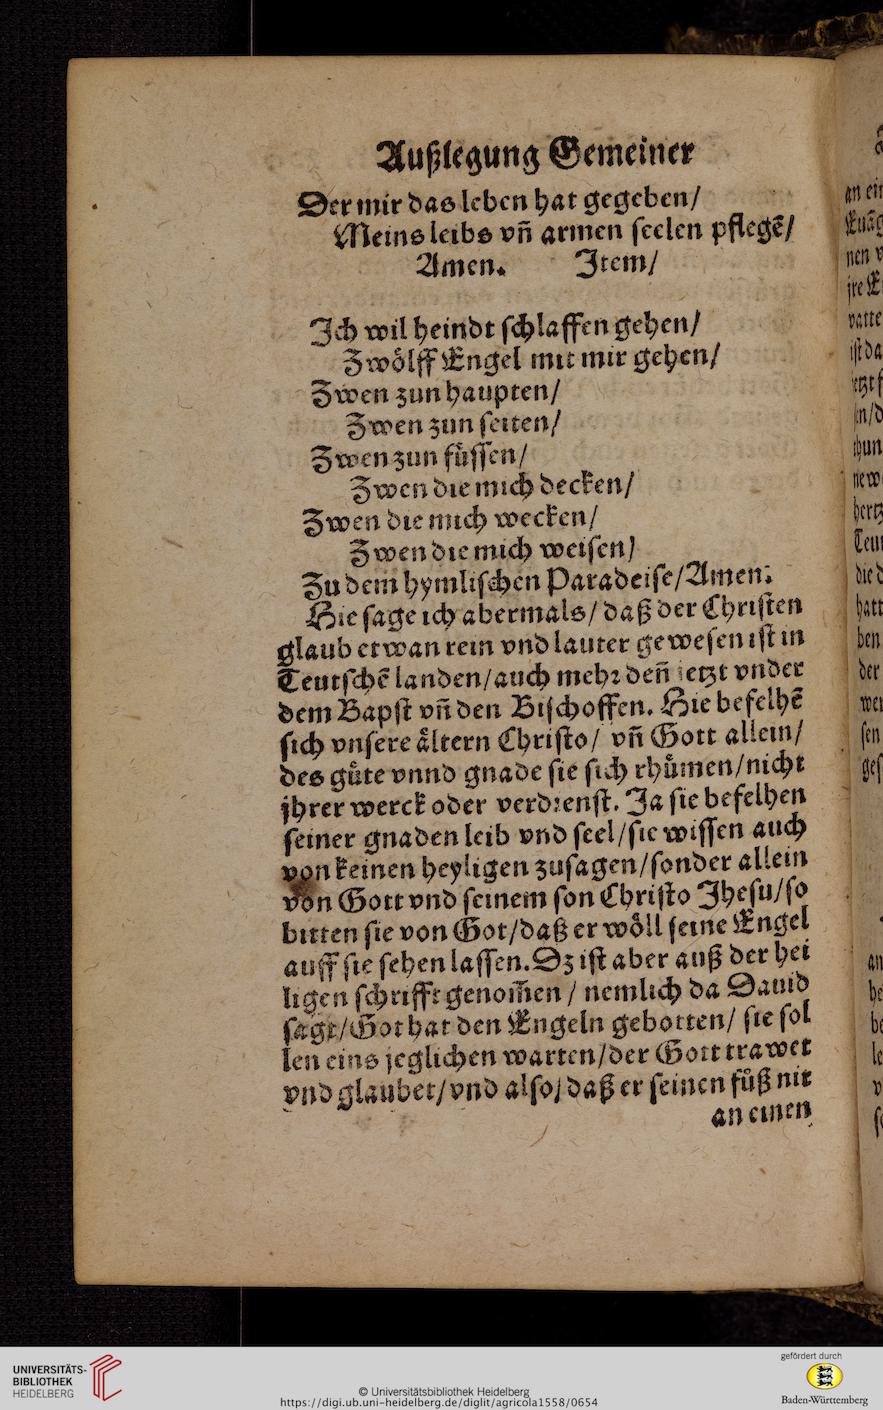 Außlegung Gemeiner
Der mir das leben hat gegeben/
Meins leibs vñ armen ſeelen pflegẽ/
Amen. Item/
Ich wil heindt ſchlaffen gehen/
Zwoͤlff Engel mit mir gehen/
Zwen zun haupten/
Zwen zun ſeiten/
Zwen zun fuͤſſen/
Zwen die mich decken/
Zwen die mich wecken/
Zwen die mich weiſen/
Zu dem hymliſchen Paradeiſe/Amen.
Hie ſage ich abermals/ daß der Chriſten
glaub etwan rein vnd lauter geweſen iſt in
Teutſchẽ landen/auch mehꝛ deñ ietzt vnder
dem Bapſt vñ den Biſchoffen. Hie befelhẽ
ſich vnſere aͤltern Chriſto/ vñ Gott allein/
des guͤte vnnd gnade ſie ſich rhuͤmen/nicht
jhrer werck oder verdꝛenſt. Ja ſie befelhen
ſeiner gnaden leib vnd ſeel/ſie wiſſen auch
von keinen heyligen zuſagen/ſonder allein
von Gott vnd ſeinem ſon Chriſto Jheſu/ſo
bitten ſie von Got/daß er woͤll ſeine Engel
auff ſie ſehen laſſen. Dz iſt aber auß der hei
ligen ſchrifft genom̃en / nemlich da Dauid
ſagt/Got hat den Engeln gebotten/ ſie ſol
len eins jeglichen warten/der Gott trawet
vnd glaubet/vnd alſo/daß er ſeinen fuͤß nit
an einen
UNIVERSITÄTS-
BIBLIOTHEK
HEIDELBERG
© Universitätsbibliothek Heidelberg
https://digi.ub.uni-heidelberg.de/diglit/agricola1558/0654
gefördert durch
Baden-Württemberg